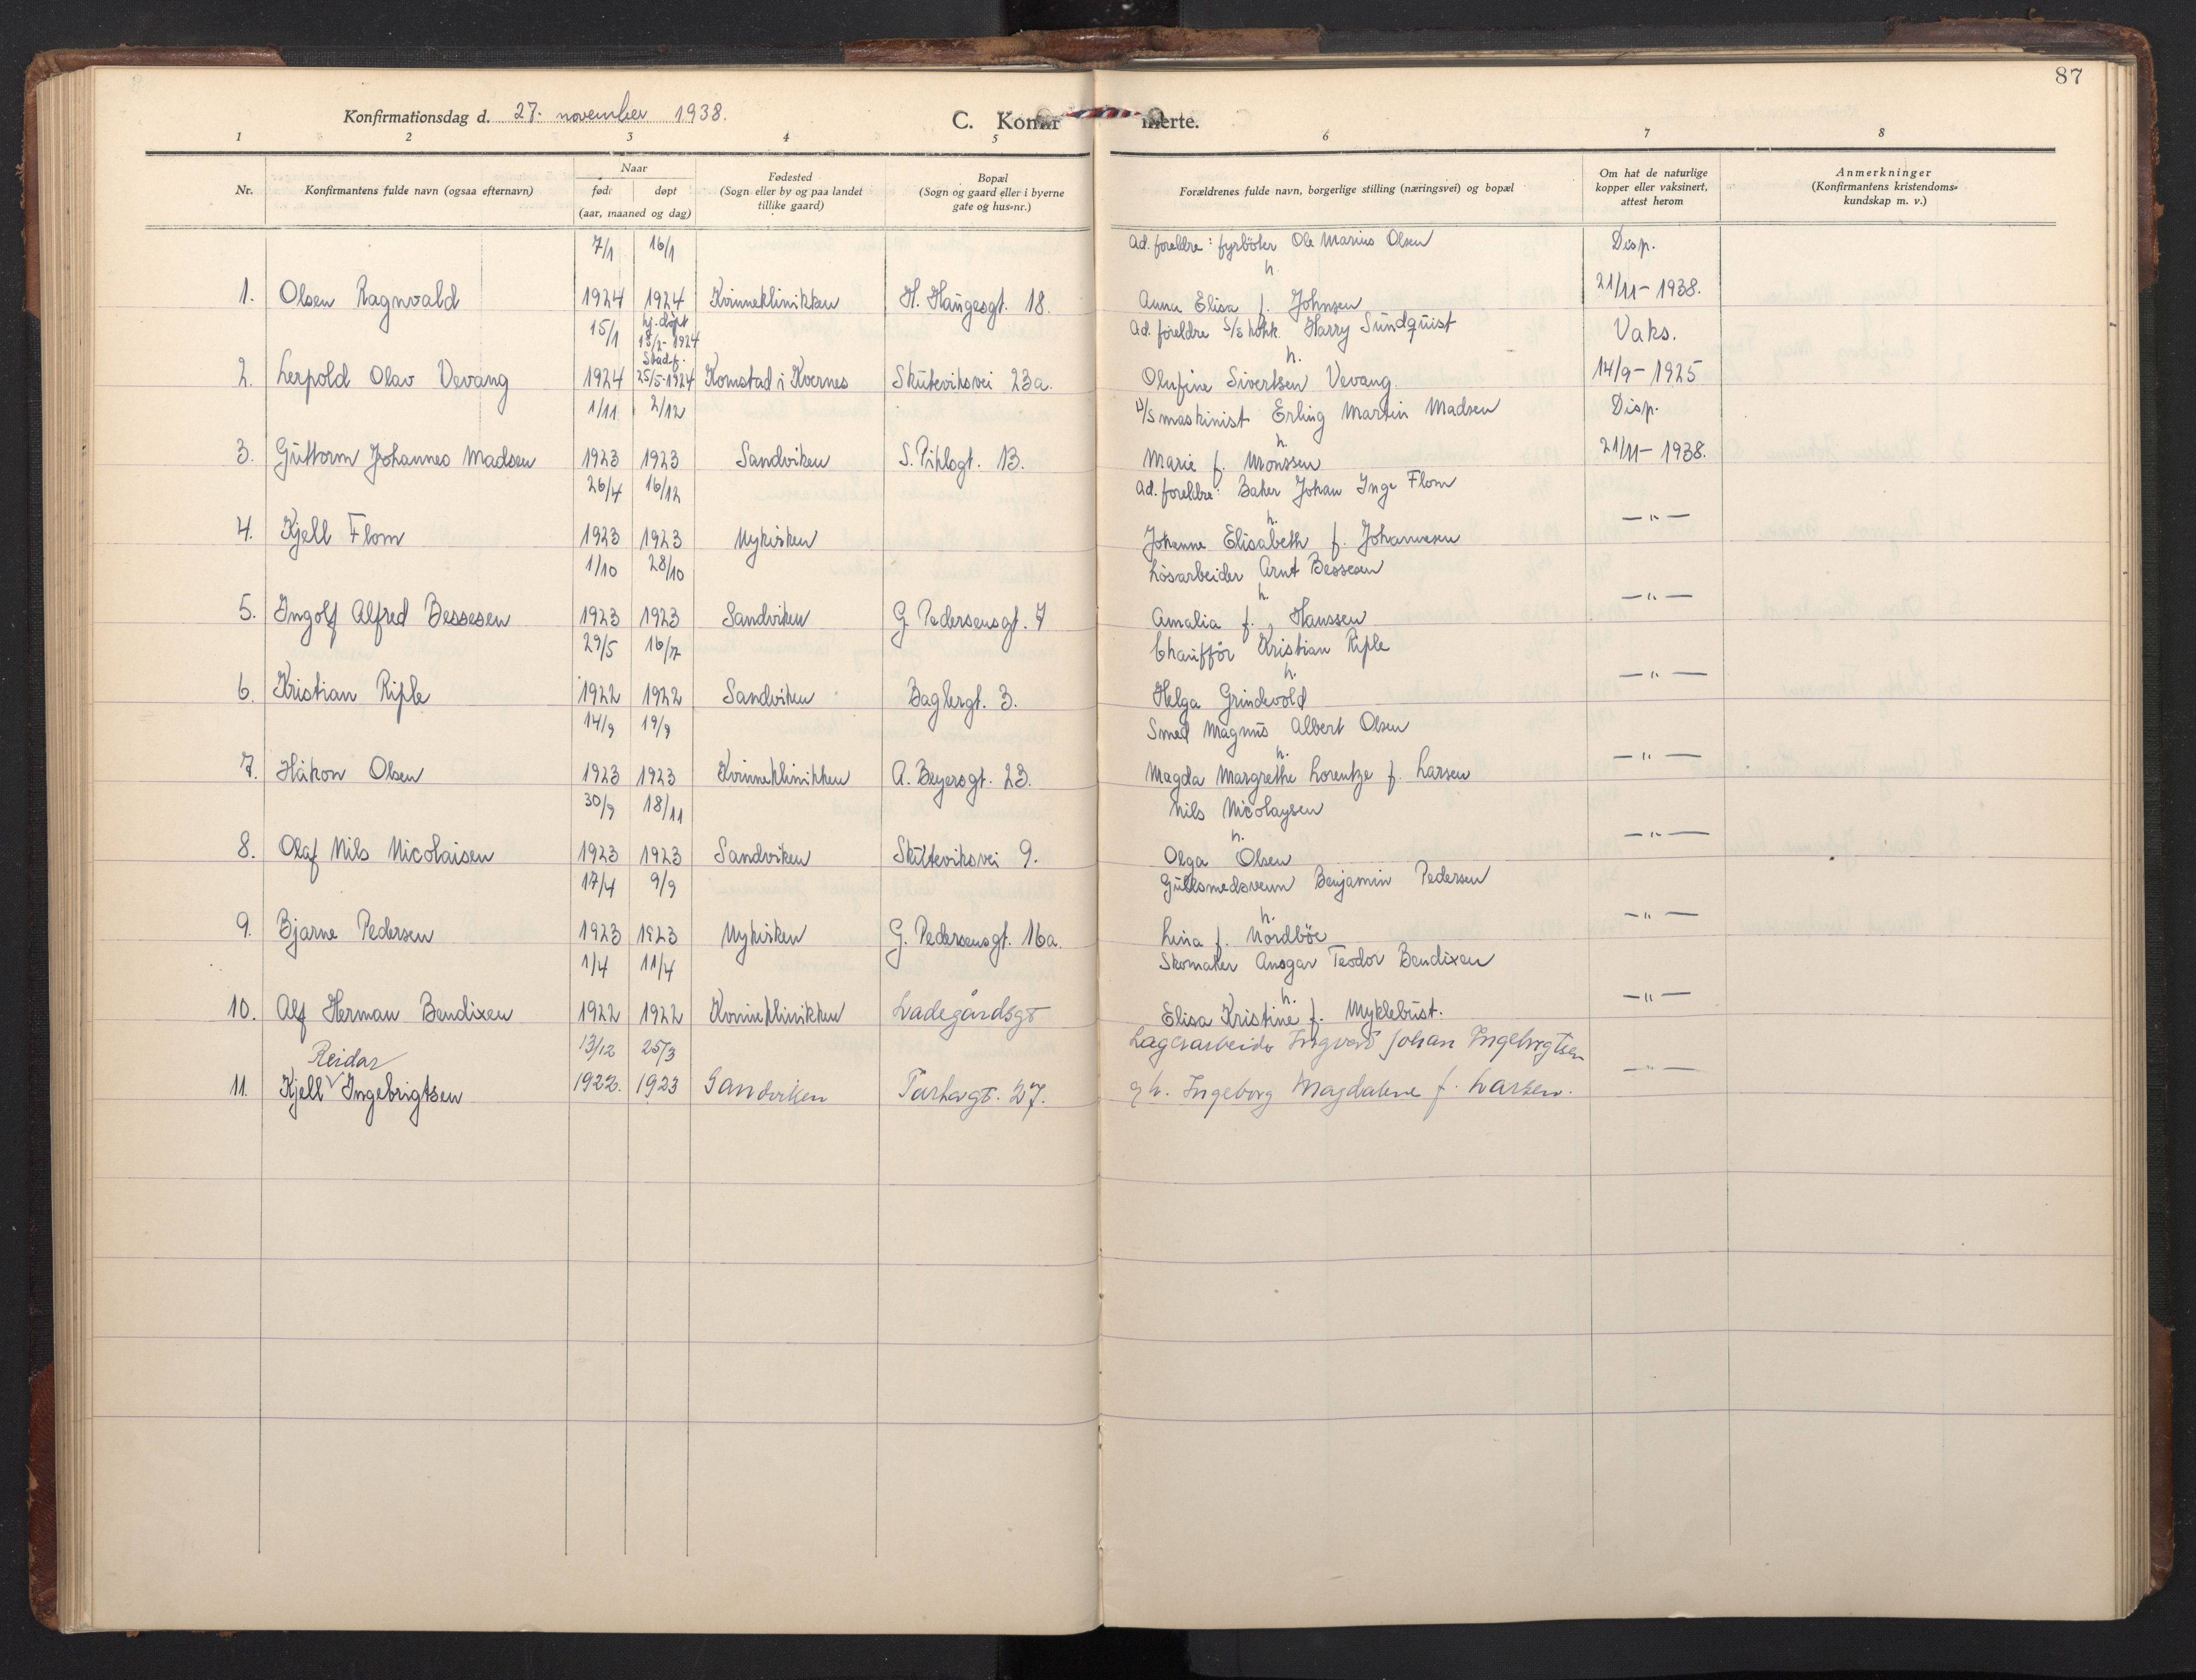 87
Konfirmationsdag d. 27. november 1938.
C. Konfir merte.
1 2 3 4 5 6 7 8
Nr.
Konfirmantens fulde navn (ogsaa efternavn)
Naar
født
døpt
(aar, maaned og dag)
Fødested
(Sogn eller by og paa landet
tillike gaard)
Bopæl
(Sogn og gaard eller i byerne
gate og hus=nr.)
Forældrenes fulde navn, borgerlige stilling (næringsvei) og bopæl
Om hat de naturlige
kopper eller vaksinert,
attest herom
Anmerkninger
(Konfirmantens kristendoms=
kundskap m. v.)
7/1 16/1 Ad. foreldre: fyrböter Ole Marius Olsen Disp.
h.
1. Olsen Ragnvald 1924 1924 Kvinneklinikken H. Haugesgt. 18. Anna Elisa f. Johnsen 21/11- 1938.
15/1 hj. döpt Ad. foreldre S/S kokk Harry Sundquist Vaks.
18/2- 1924
Stadf. h.
2. Lerpold Olav Vevang 1924 25/5-1924 Komstad i Kvernes Skuteviksvei 23a. Olufine Sivertsen Vevang. 14/9- 1925
1/11 2/12 D/S maskinist Erling Martin Madsen Disp.
h.
3. Guttorm Johannes Madsen 1923 1923 Sandviken S. Piplsgt. 13. Marie f. Monssen 21/11- 1938.
26/4 16/12 Ad. foreldre: Baker Johan Inge Flom
h.
4. Kjell Flom 1923 1923 Nykirken Johanne Elisabeth f. Johannesen —"—
1/10 28/10 Lösarbeider Arnt Bessesen
h.
5. Ingolf Alfred Bessesen 1923 1923 Sandviken G. Pedersensgt. 7 Amalia f. Hanssen —"—
29/5 16/7 Chaufför Kristian Riple
h.
6. Kristian Riple 1922 1922 Sandviken Baglergt. 3. Helga Grindevold —"—
14/9 19/9 Smed Magnus Albert Olsen
h.
7. Håkon Olsen 1923 1923 Kvinneklinikken A. Beyersgt. 23. Magda Margrethe Lorentze f. Larsen —"—
30/9 18/11 Nils Nicolaysen
h.
8. Olaf Nils Nicolaisen 1923 1923 Sandviken Skuteviksvei 9. Olga Olsen —"—
17/4 9/9 Gullsmedsvenn Benjamin Pedersen
h.
9. Bjarne Pedersen 1923 1923 Nykirken G. Pedersensgt. 16a. Lina f. Nordböe —"—
1/4 11/4 Skomaker Ansgar Teodor Bendixen
h.
10. Alf Herman Bendixen 1922 1922 Kvinneklinikken Ladegårdsgt Elisa Kristine f. Myklebust. —"—
Reidar 13/12 25/3 Lagerarbeider Ingvard Johan Ingebrigtsen
11. Kjell Ingebrigtsen 1922. 1923 Sandviken 27. h. Ingeborg Magdalene f. Larsen. —"—